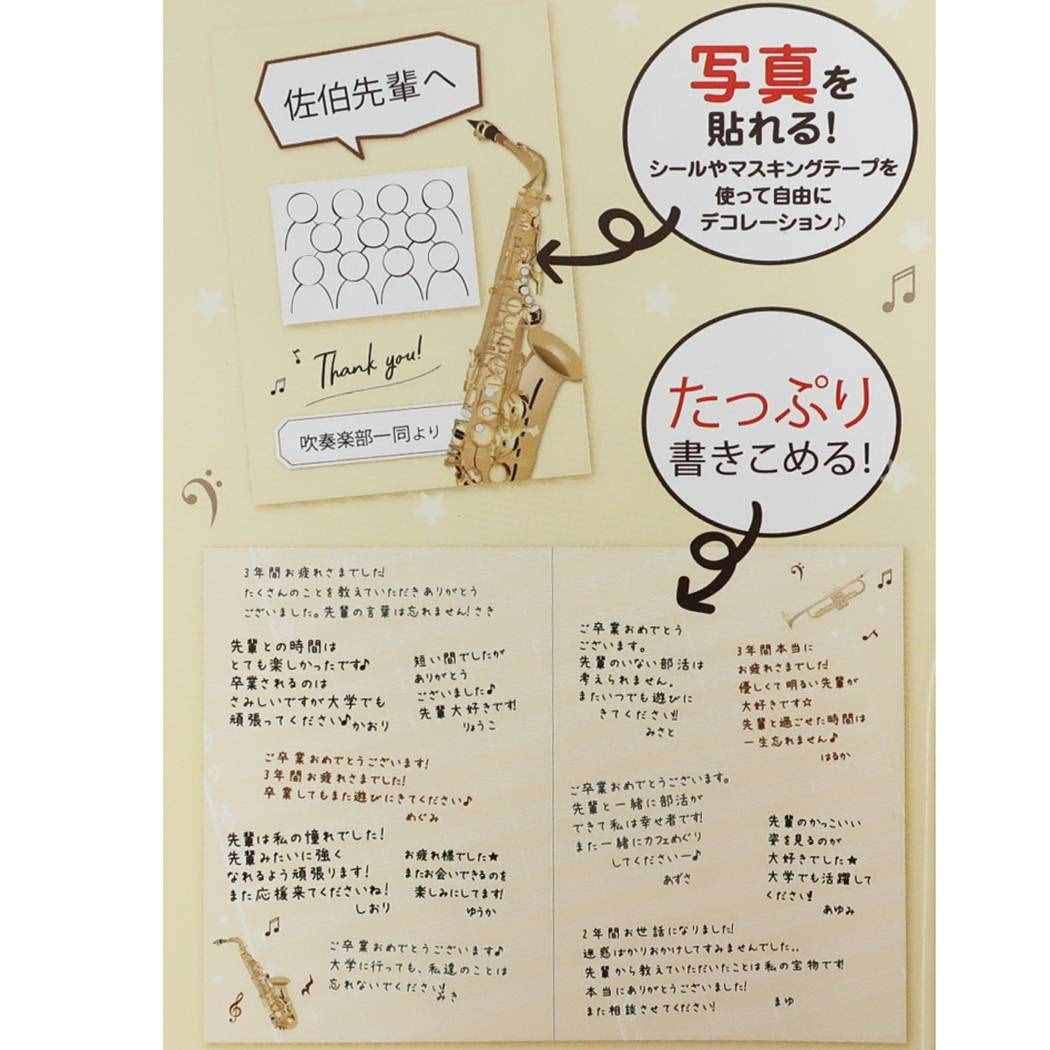 佐伯先輩へ
Thank you!
吹奏楽部一同より
写真を
貼れる!
シールやマスキングテープを
使って自由に
デコレーション♪
たっぷり
書きこめる!
3年間お疲れさまでした!
たくさんのことを教えていただきありがとう
ございました。先輩の言葉は忘れません! さき
先輩との時間は
とても楽しかったです♪
卒業されるのは
さみしいですが大学でも
頑張ってください♪かおり
短い間でしたが
ありがとう
ございました♪
先輩大好きです!
りょうこ
ご卒業おめでとうございます!
3年間お疲れさまでした!
卒業してもまた遊びにきてください♪
めぐみ
先輩は私の憧れでした!
先輩みたいに強く
なれるよう頑張ります!
また応援来てくださいね!
しおり
お疲れ様でした★
またお会いできるのを
楽しみにしてます!
ゆうか
ご卒業おめでとうございます♪
大学に行っても、私達のことは
忘れないでください!
みき
ご卒業おめでとう
ございます。
先輩のいない部活は
考えられません。
またいつでも遊びに
きてください!!
みさと
3年間本当に
お疲れさまでした!
優しくて明るい先輩が
大好きです☆
先輩と過ごせた時間は
一生忘れません♪
はるか
ご卒業おめでとうございます。
先輩と一緒に部活が
できて私は幸せ者です!
また一緒にカフェめぐり
してくださいー♪
あずさ
先輩のかっこいい
姿を見るのが
大好きでした★
大学でも活躍して
ください!!
あゆみ
2年間お世話になりました!
迷惑ばかりおかけしてすみませんでした..
先輩から教えていただいたことは私の宝物です!
本当にありがとうございました!
また相談させてください!
まゆ